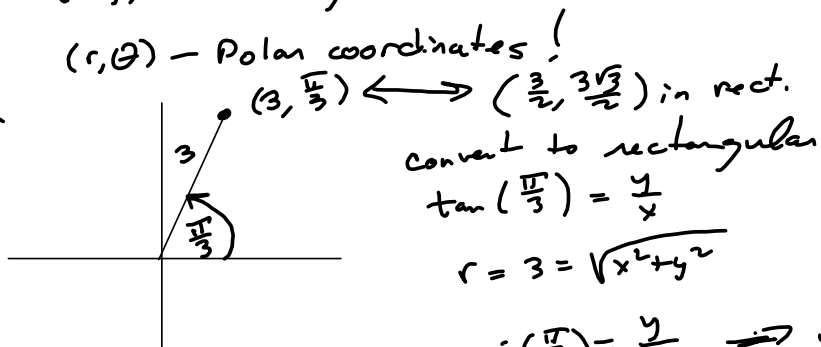 (r, θ) – Polar coordinates!
(3, π/3) ⟷ (3/2, 3√3/2) in rect.
3
convert to rectangular
π/3
tan(π/3) = y/x
r = 3 = √(x²+y²)
(π/3) = y ⟹